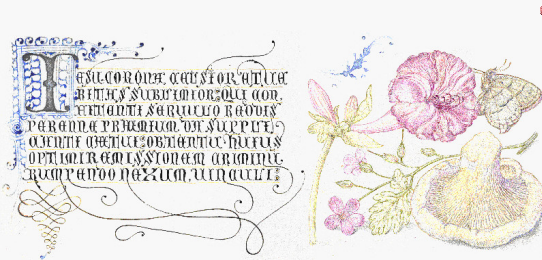 IESU CORONA CELSIOR, ET VE
RITAS SUBLIMIOR: QUI CON,
FITENTI SERVULO REDDIS
PERENNE PRÆMIUM. DA SUPPLI,
CÆTUI: OBTENTU HUIUS
OPTIMI REMISSIONEM CRIMINU
RUMPENDO NEXUM, VINCULI.